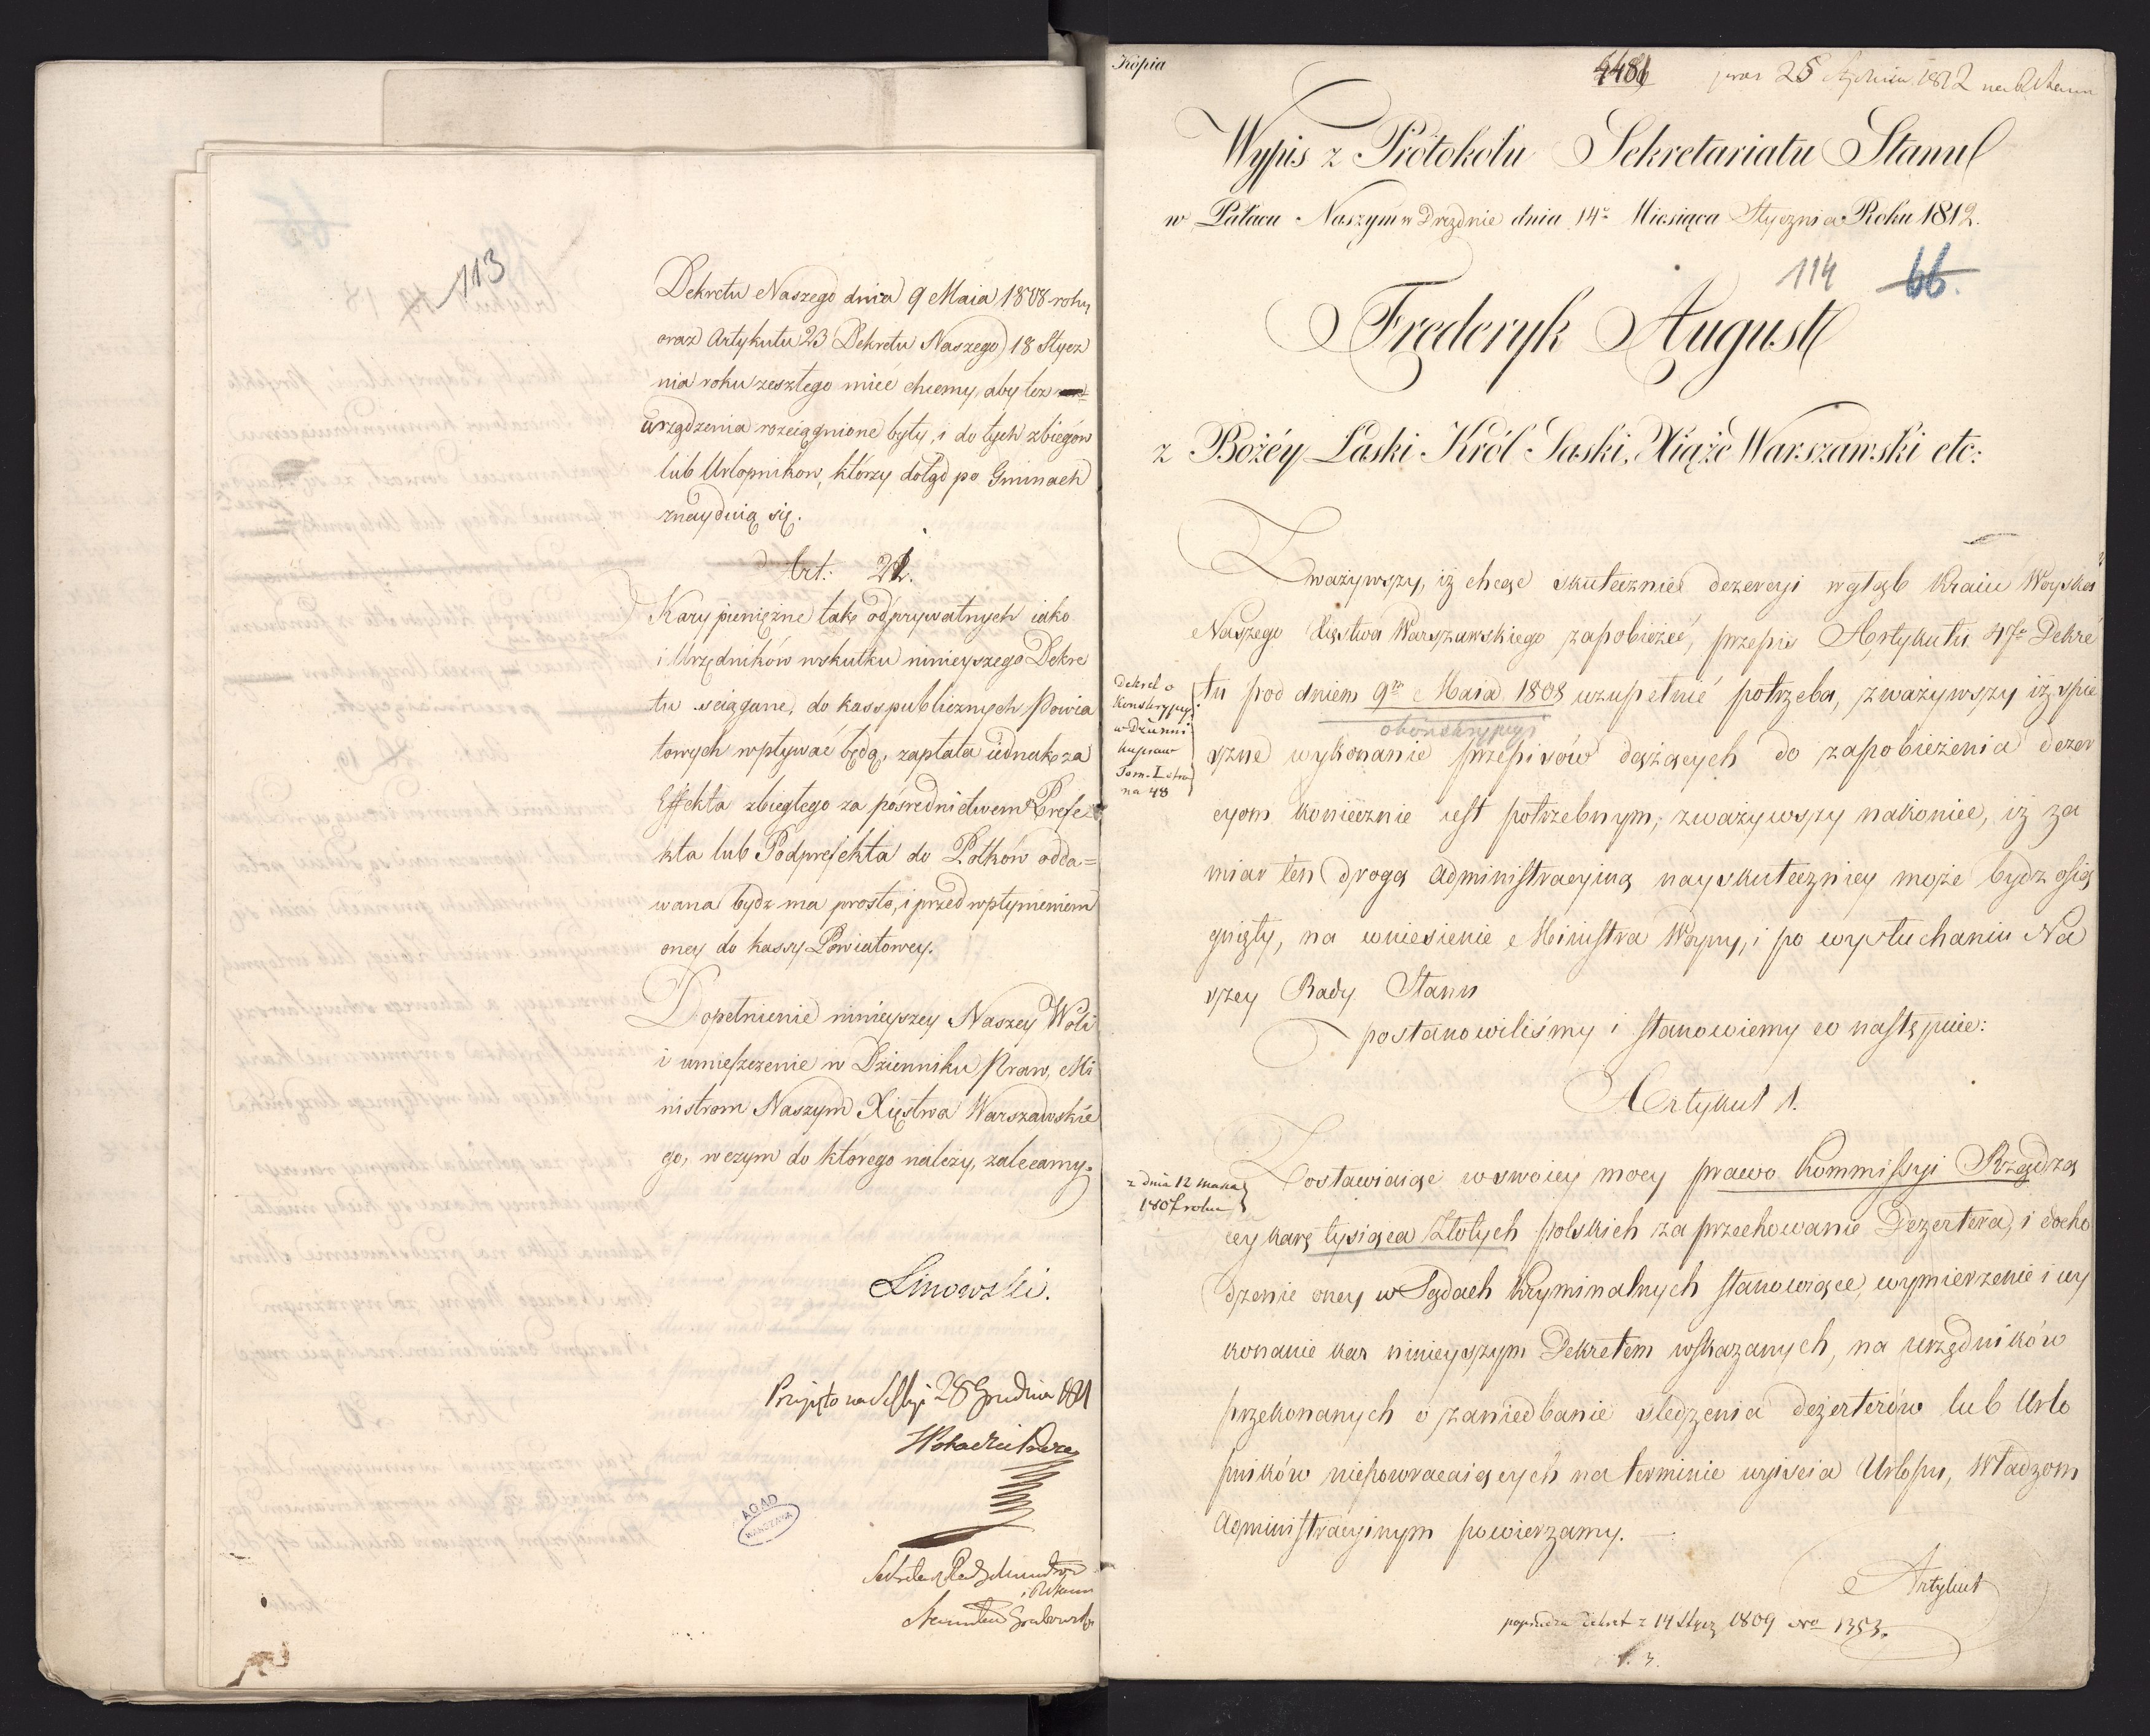 113
Dekretu Naszego dnia 9 Maia 1808 roku
oraz Artykułu 23 Dekretu Naszego 18 Stycz
nia roku zeszłego mieć chcemy, aby też
urządzenia rozciągnione były, i do tych zbiegów
lub Urlopników, którzy dotąd po Gminach
znayduią się.
Art: 21.
Kary pieniężne tak od prywatnych iako
i Urzędników w skutku ninieyszego Dekre
tu sciągane, do kass publicznych Powia
towych wpływać będą, zapłata iednak za
Effekta zbiegłego za pośrednictwem Prefe
kta lub Podprefekta do Pólków odda=
wana bydz ma prosto, i przed wpłynieniem
oney do kassy Powiatowey.
Dopełnienie ninieyszey Naszey Woli
i umieszczenie w Dzienniku Praw, Mi
nistrom Naszym Xięstwa Warszawskie
go, w czym do którego należy, zalecamy.
Linowski.
Przyięto na Sessyi 28 Grudnia 1811
AGAD
WARSZAWA
i Stanu
Stanisław Grabowski
Kopia
4486
25 Stycznia 1812
Wypis z Protokołu Sekretariatu Stanu
w Pałacu Naszym w Dreznie dnia 14º Miesiąca Stycznia Roku 1812.
114 66.
Fryderyk August
z Bożéy Łaski Król Saski, Xiąże Warszawski etc:
Zważywszy, iż chcąc skutecznie dezercyi w głąb Kraiu Woyska
Naszego Xięstwa Warszawskiego zapobieżéć, przepis Artykułu 47º Dekre
tu pod dniem 9m Maia 1808 uzupełnić potrzeba, zważywszy iż spie
o konskrypcyi
Dekret o
Konskrypcyi
w Dzienni
ku praw
Tom. I stro
na 48
szne wykonanie przepisów dążących do zapobieżenia dezer
cyom koniecznie iest potrzebnym; zważywszy nakoniec, iż za
miar ten drogą administracyiną nayskuteczniey może bydz osią
gnięty, na wniesienie Ministra Woyny, i po wysłuchaniu Na
szey Rady Stanu
postanowiliśmy i stanowiemy co następuie:
Artykuł 1.
Zostawiaiąc w swoiey mocy prawo Kommissyi Rządzą
z dnia 12 maia
1807 roku
cey karę tysiąca Złotych polskich za przechowanie Dezertera, i docho
dzenie oney w Sądach kryminalnych stanowiące, wymierzenie i wy
konanie kar ninieyszym Dekretem wskazanych, na urzędników
przekonanych o zaniedbanie sledzenia dezerterów lub Urlo
pników niepowracaiących na terminie wyiscia Urlopu, Władzom
administracyinym powierzamy.
Artykuł
dekret z 14 Stycz 1809 Nro 1353.